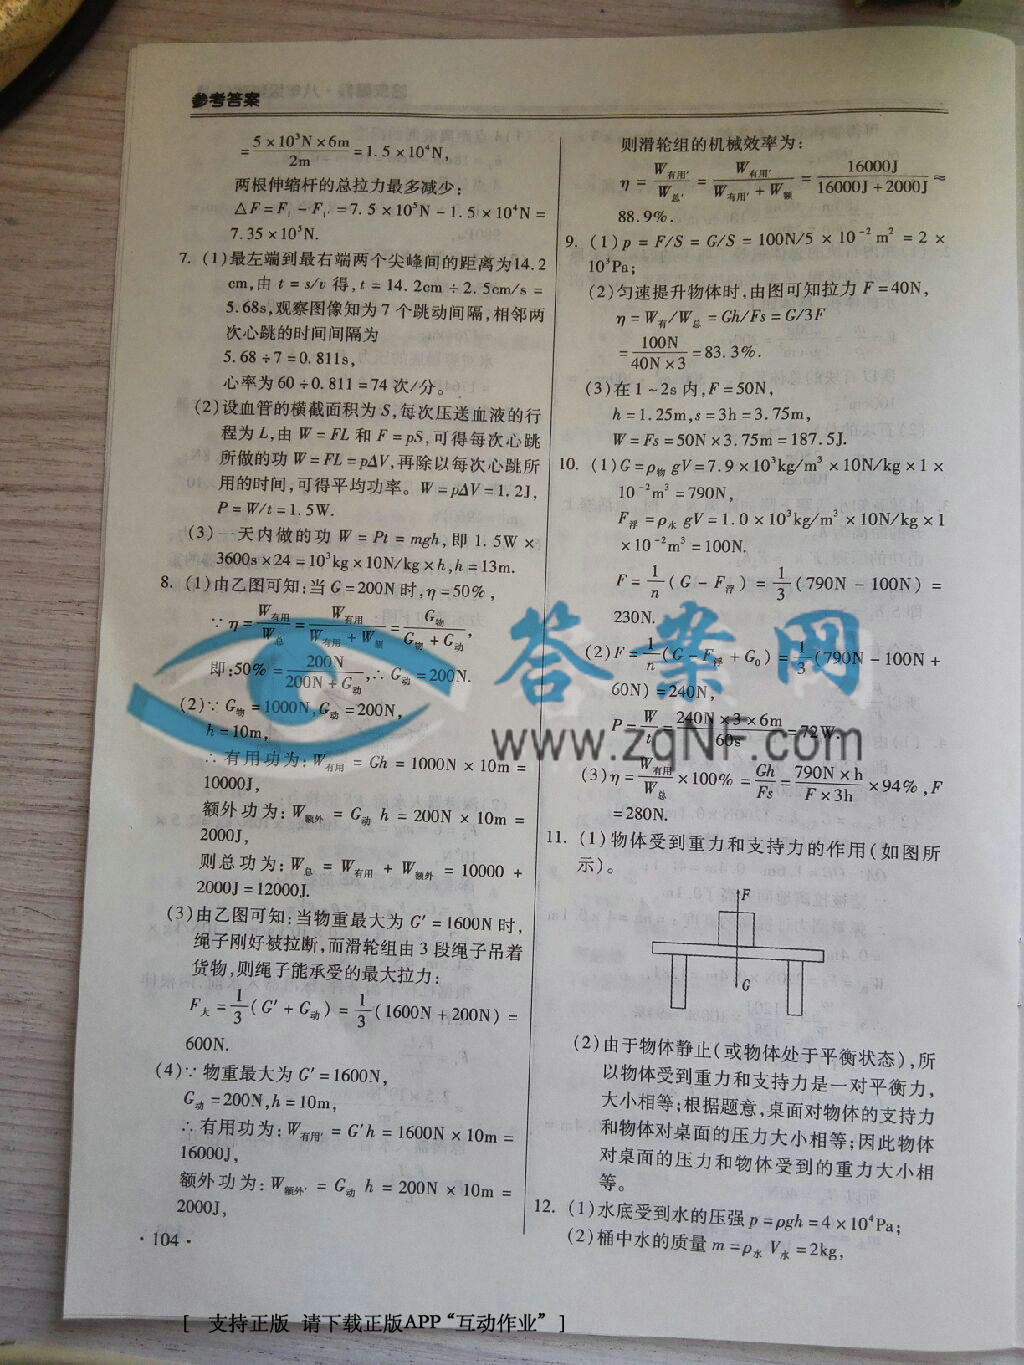 参考答案
= 5×10³N×6m / 2m = 1.5×10⁴N,
两根伸缩杆的总拉力最多减少:
△F=F₁-F₁'=7.5×10⁵N-1.5×10⁴N=
7.35×10⁵N.
7. (1)最左端到最右端两个尖峰间的距离为14.2
cm,由 t=s/v 得,t=14.2cm÷2.5cm/s=
5.68s,观察图像知为7个跳动间隔,相邻两
次心跳的时间间隔为
5.68÷7=0.811s,
心率为60÷0.811=74次/分。
(2)设血管的横截面积为S,每次压送血液的行
程为L,由 W=FL 和 F=pS,可得每次心跳
所做的功 W=FL=pΔV,再除以每次心跳所
用的时间,可得平均功率。W=pΔV=1.2J,
P=W/t=1.5W.
(3)一天内做的功 W=Pt=mgh,即 1.5W×
3600s×24=10³kg×10N/kg×h,h=13m.
8. (1)由乙图可知:当 G=200N 时,η=50%,
∵η=W有用/W总=W有用/(W有用+W额)=G物/(G物+G动),
即:50%=200N/(200N+G动),∴G动=200N.
(2)∵G物=1000N,G动=200N,
h=10m,
∴有用功为:W有用=Gh=1000N×10m=
10000J,
额外功为:W额外=G动 h=200N×10m=
2000J,
则总功为:W总=W有用+W额外=10000+
2000J=12000J.
(3)由乙图可知:当物重最大为 G'=1600N 时,
绳子刚好被拉断,而滑轮组由3段绳子吊着
货物,则绳子能承受的最大拉力:
F大=1/3(G'+G动)=1/3(1600N+200N)=
600N.
(4)∵物重最大为 G'=1600N,
G动=200N,h=10m,
∴有用功为:W有用'=G'h=1600N×10m=
16000J,
额外功为:W额外'=G动 h=200N×10m=
2000J,
·104·
则滑轮组的机械效率为:
η=W有用'/W总'=W有用'/(W有用'+W额)=16000J/(16000J+2000J)≈
88.9%.
9. (1)p=F/S=G/S=100N/5×10⁻²m²=2×
10³Pa;
(2)匀速提升物体时,由图可知拉力 F=40N,
η=W有/W总=Gh/Fs=G/3F
=100N/(40N×3)=83.3%.
(3)在1~2s内,F=50N,
h=1.25m,s=3h=3.75m,
W=Fs=50N×3.75m=187.5J.
10. (1)G=ρ物gV=7.9×10³kg/m³×10N/kg×1×
10⁻²m³=790N,
F浮=ρ水gV=1.0×10³kg/m³×10N/kg×1
×10⁻²m³=100N.
F=1/n(G-F浮)=1/3(790N-100N)=
230N.
(2)F=1/n(G-F浮+G₀)=1/3(790N-100N+
60N)=240N,
P=W/t=240N×3×6m/60s=72W.
(3)η=W有用/W总×100%=Gh/Fs=790N×h/F×3h×94%,F
=280N.
11. (1)物体受到重力和支持力的作用(如图所
示)。
F
G
(2)由于物体静止(或物体处于平衡状态),所
以物体受到重力和支持力是一对平衡力,
大小相等;根据题意,桌面对物体的支持力
和物体对桌面的压力大小相等;因此物体
对桌面的压力和物体受到的重力大小相
等。
12. (1)水底受到水的压强 p=ρgh=4×10⁴Pa;
(2)桶中水的质量 m=ρ水 V水=2kg,
答案网
www.zqNF.com
[ 支持正版 请下载正版APP“互动作业” ]